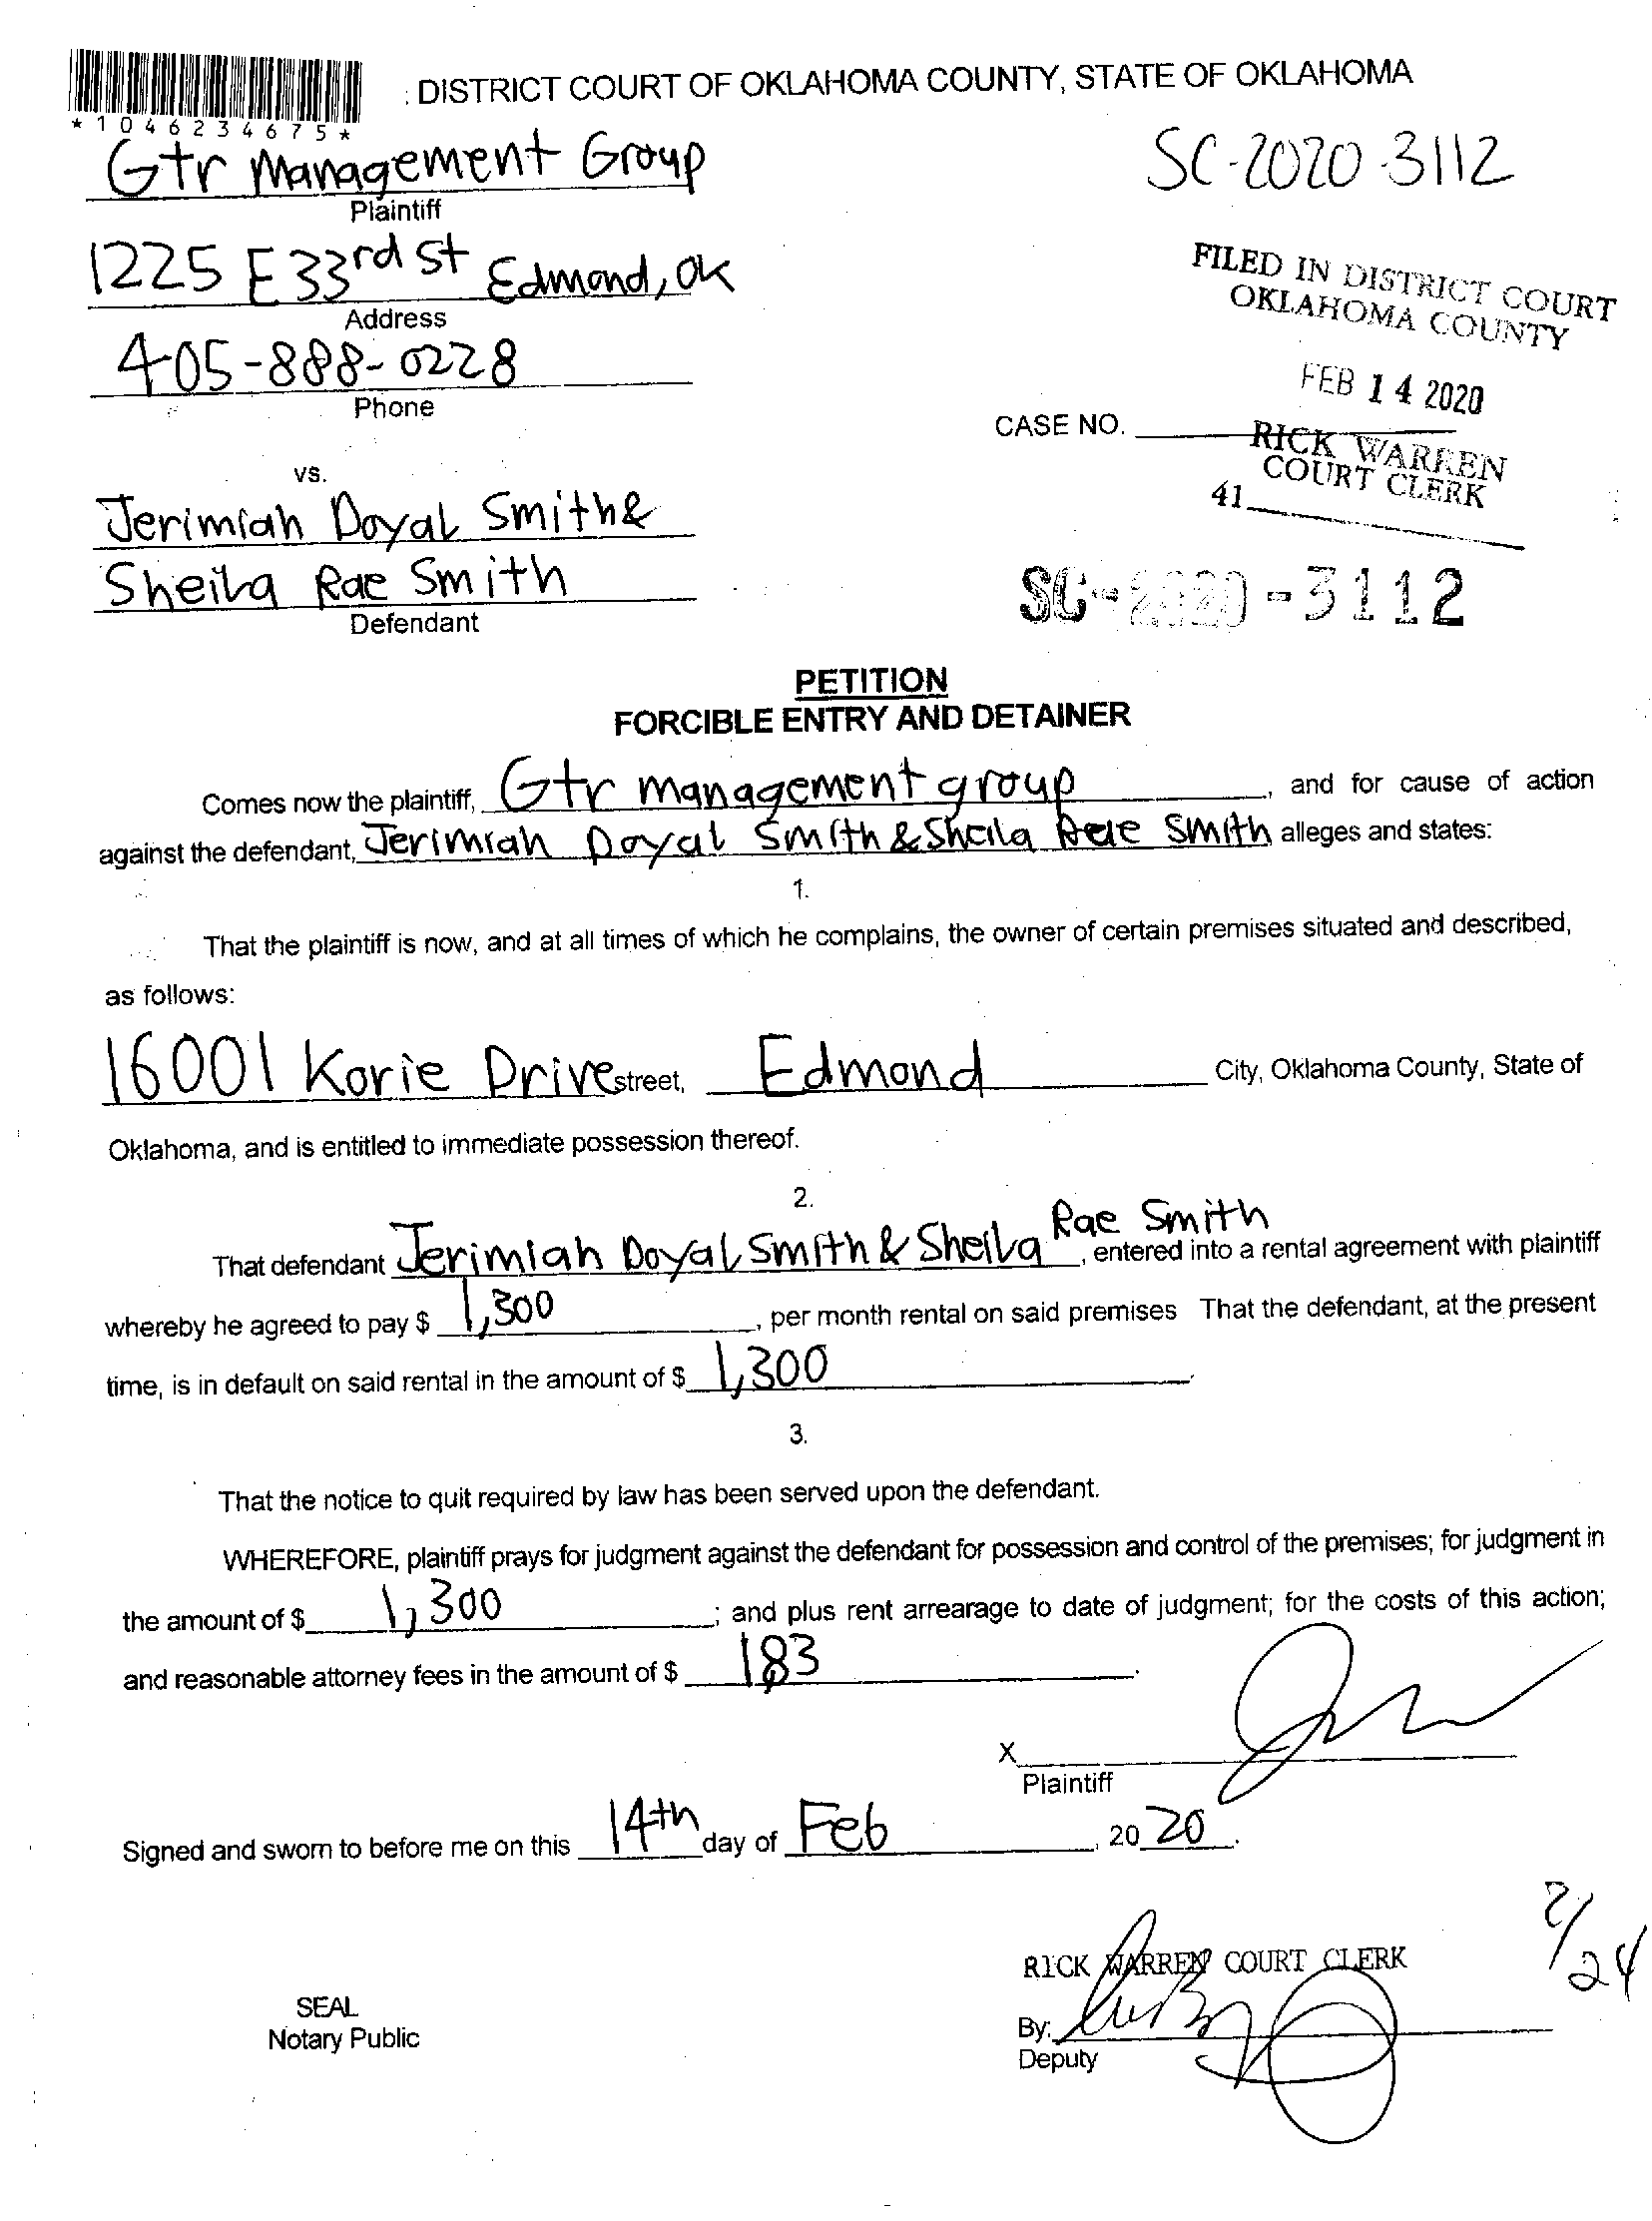 : DISTRICT COURT OF OKLAHOMA COUNTY, STATE OF OKLAHOMA
*1046234675*
Gtr Management Group
SC-2020-3112
Plaintiff
1225 E 33rd St Edmond, OK
FILED IN DISTRICT COURT
OKLAHOMA COUNTY
Address
405-888-0228
FEB 14 2020
Phone
CASE NO.
RICK WARREN
COURT CLERK
vs.
41
Jerimiah Doyal Smith &
Sheila Rae Smith
SC-2020-3112
Defendant
PETITION
FORCIBLE ENTRY AND DETAINER
Comes now the plaintiff, Gtr management group, and for cause of action
against the defendant, Jerimiah Doyal Smith & Sheila Rae Smith alleges and states:
1.
That the plaintiff is now, and at all times of which he complains, the owner of certain premises situated and described,
as follows:
16001 Korie Drive street, Edmond City, Oklahoma County, State of
Oklahoma, and is entitled to immediate possession thereof.
2.
That defendant Jerimiah Doyal Smith & Sheila Rae Smith, entered into a rental agreement with plaintiff
whereby he agreed to pay $ 1,300, per month rental on said premises That the defendant, at the present
time, is in default on said rental in the amount of $ 1,300.
3.
That the notice to quit required by law has been served upon the defendant.
WHEREFORE, plaintiff prays for judgment against the defendant for possession and control of the premises; for judgment in
the amount of $ 1,300; and plus rent arrearage to date of judgment; for the costs of this action;
and reasonable attorney fees in the amount of $ 183.
X
Plaintiff
Signed and sworn to before me on this 14th day of Feb, 20 20.
2/24
RICK WARREN COURT CLERK
SEAL
Notary Public
By:
Deputy